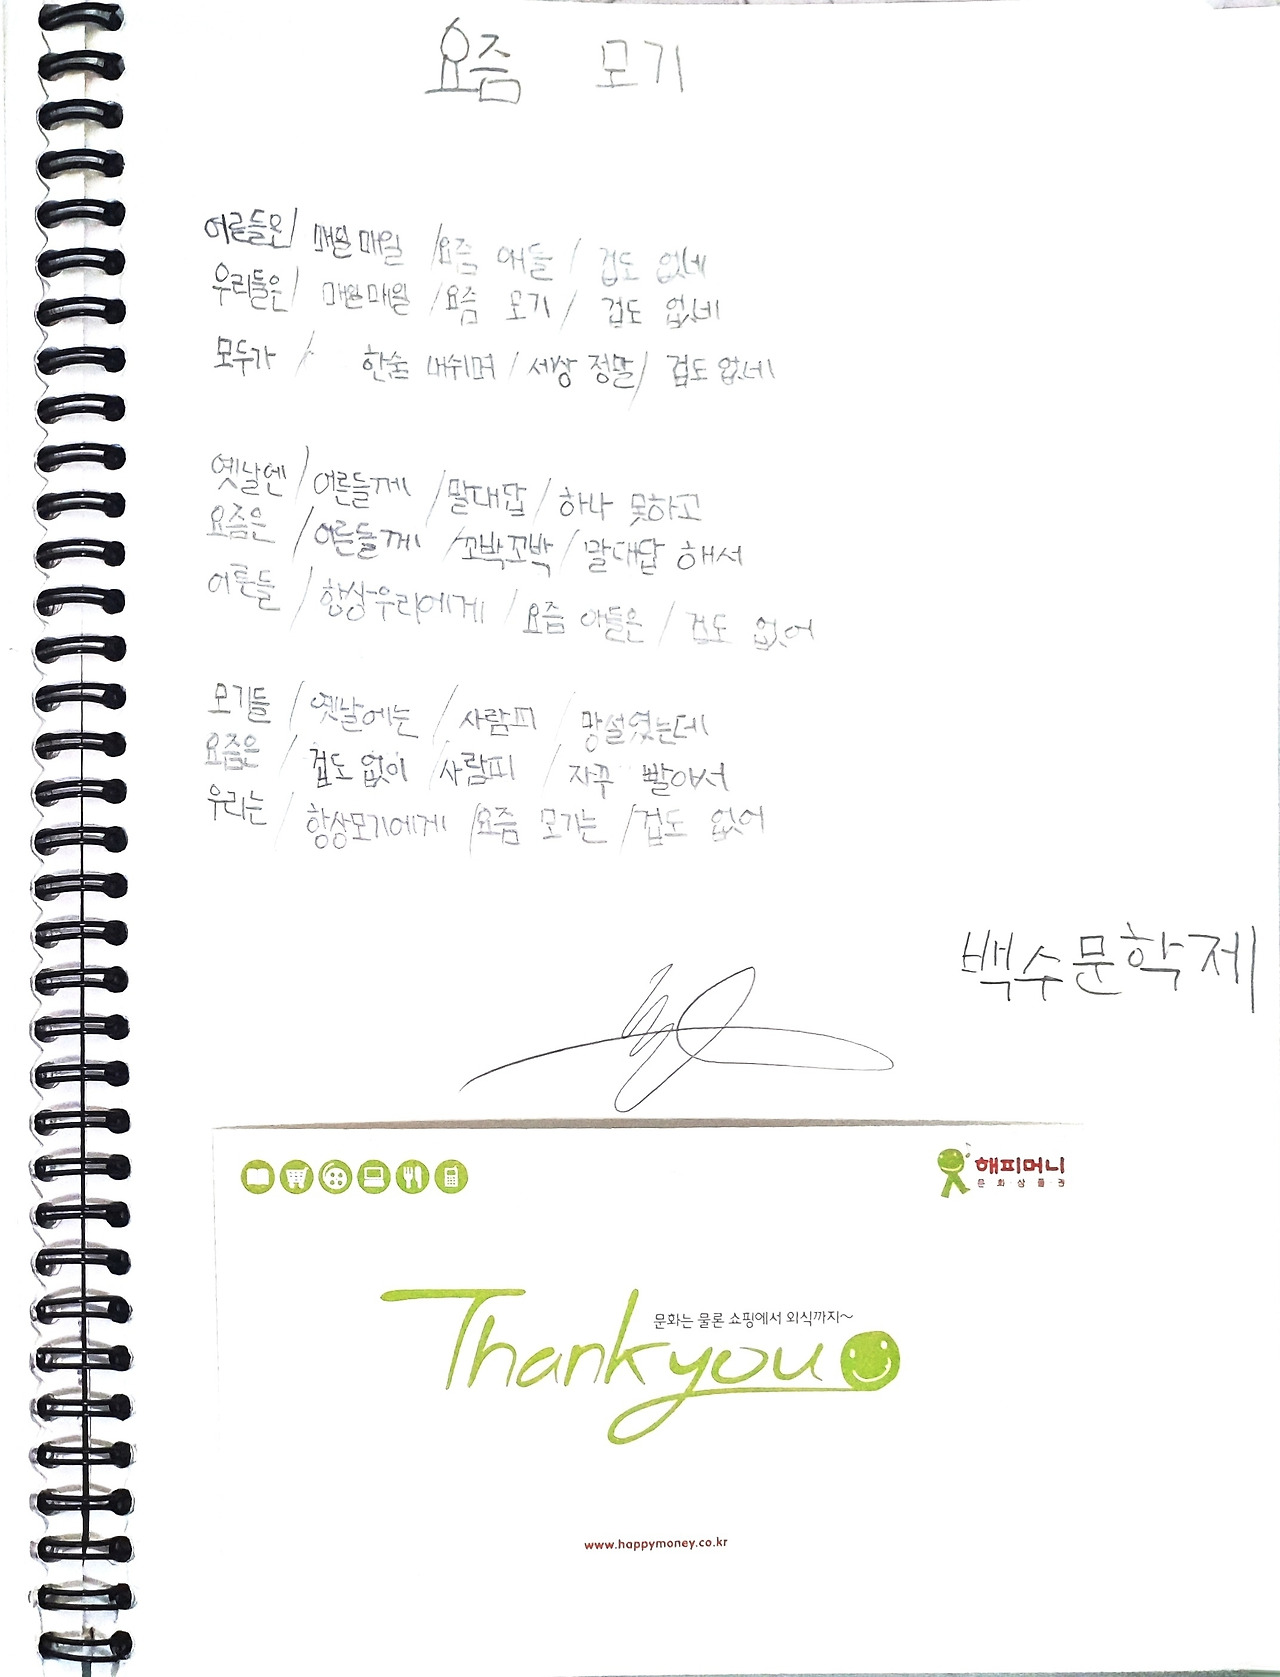 요즘 모기
어른들은/ 매일매일 /요즘 애들/ 겁도 없네
우리들은/ 매일매일 /요즘 모기/ 겁도 없네
모두가 / 한숨 내쉬며 / 세상 정말/ 겁도 없네
옛날엔/어른들께 /말대답/하나 못하고
요즘은 /어른들께 /꼬박꼬박/말대답 해서
어른들 /항상우리에게/요즘 아들은/겁도 없어
모기들 /옛날에는 /사람피 /망설였는데
요즘은 /겁도 없이 /사람피 /자꾸 빨아서
우리는 /항상모기에게 /요즘 모기는 /겁도 없어
백수문학제
해피머니
문화상품권
Thank you
문화는 물론 쇼핑에서 외식까지~
www.happymoney.co.kr